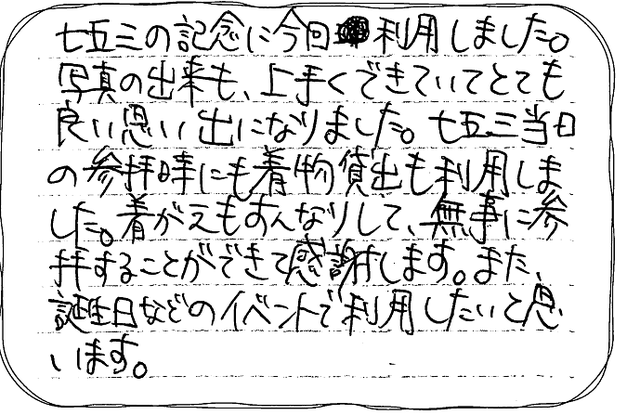 七五三の記念に今回利用しました。
写真の出来も、上手くできていてとても
良い思い出になりました。七五三当日
の参拝時にも着物貸出も利用しま
した。着がえもすんなりして、無事に参
拝することができて感謝します。また、
誕生日などのイベントで利用したいと思
います。